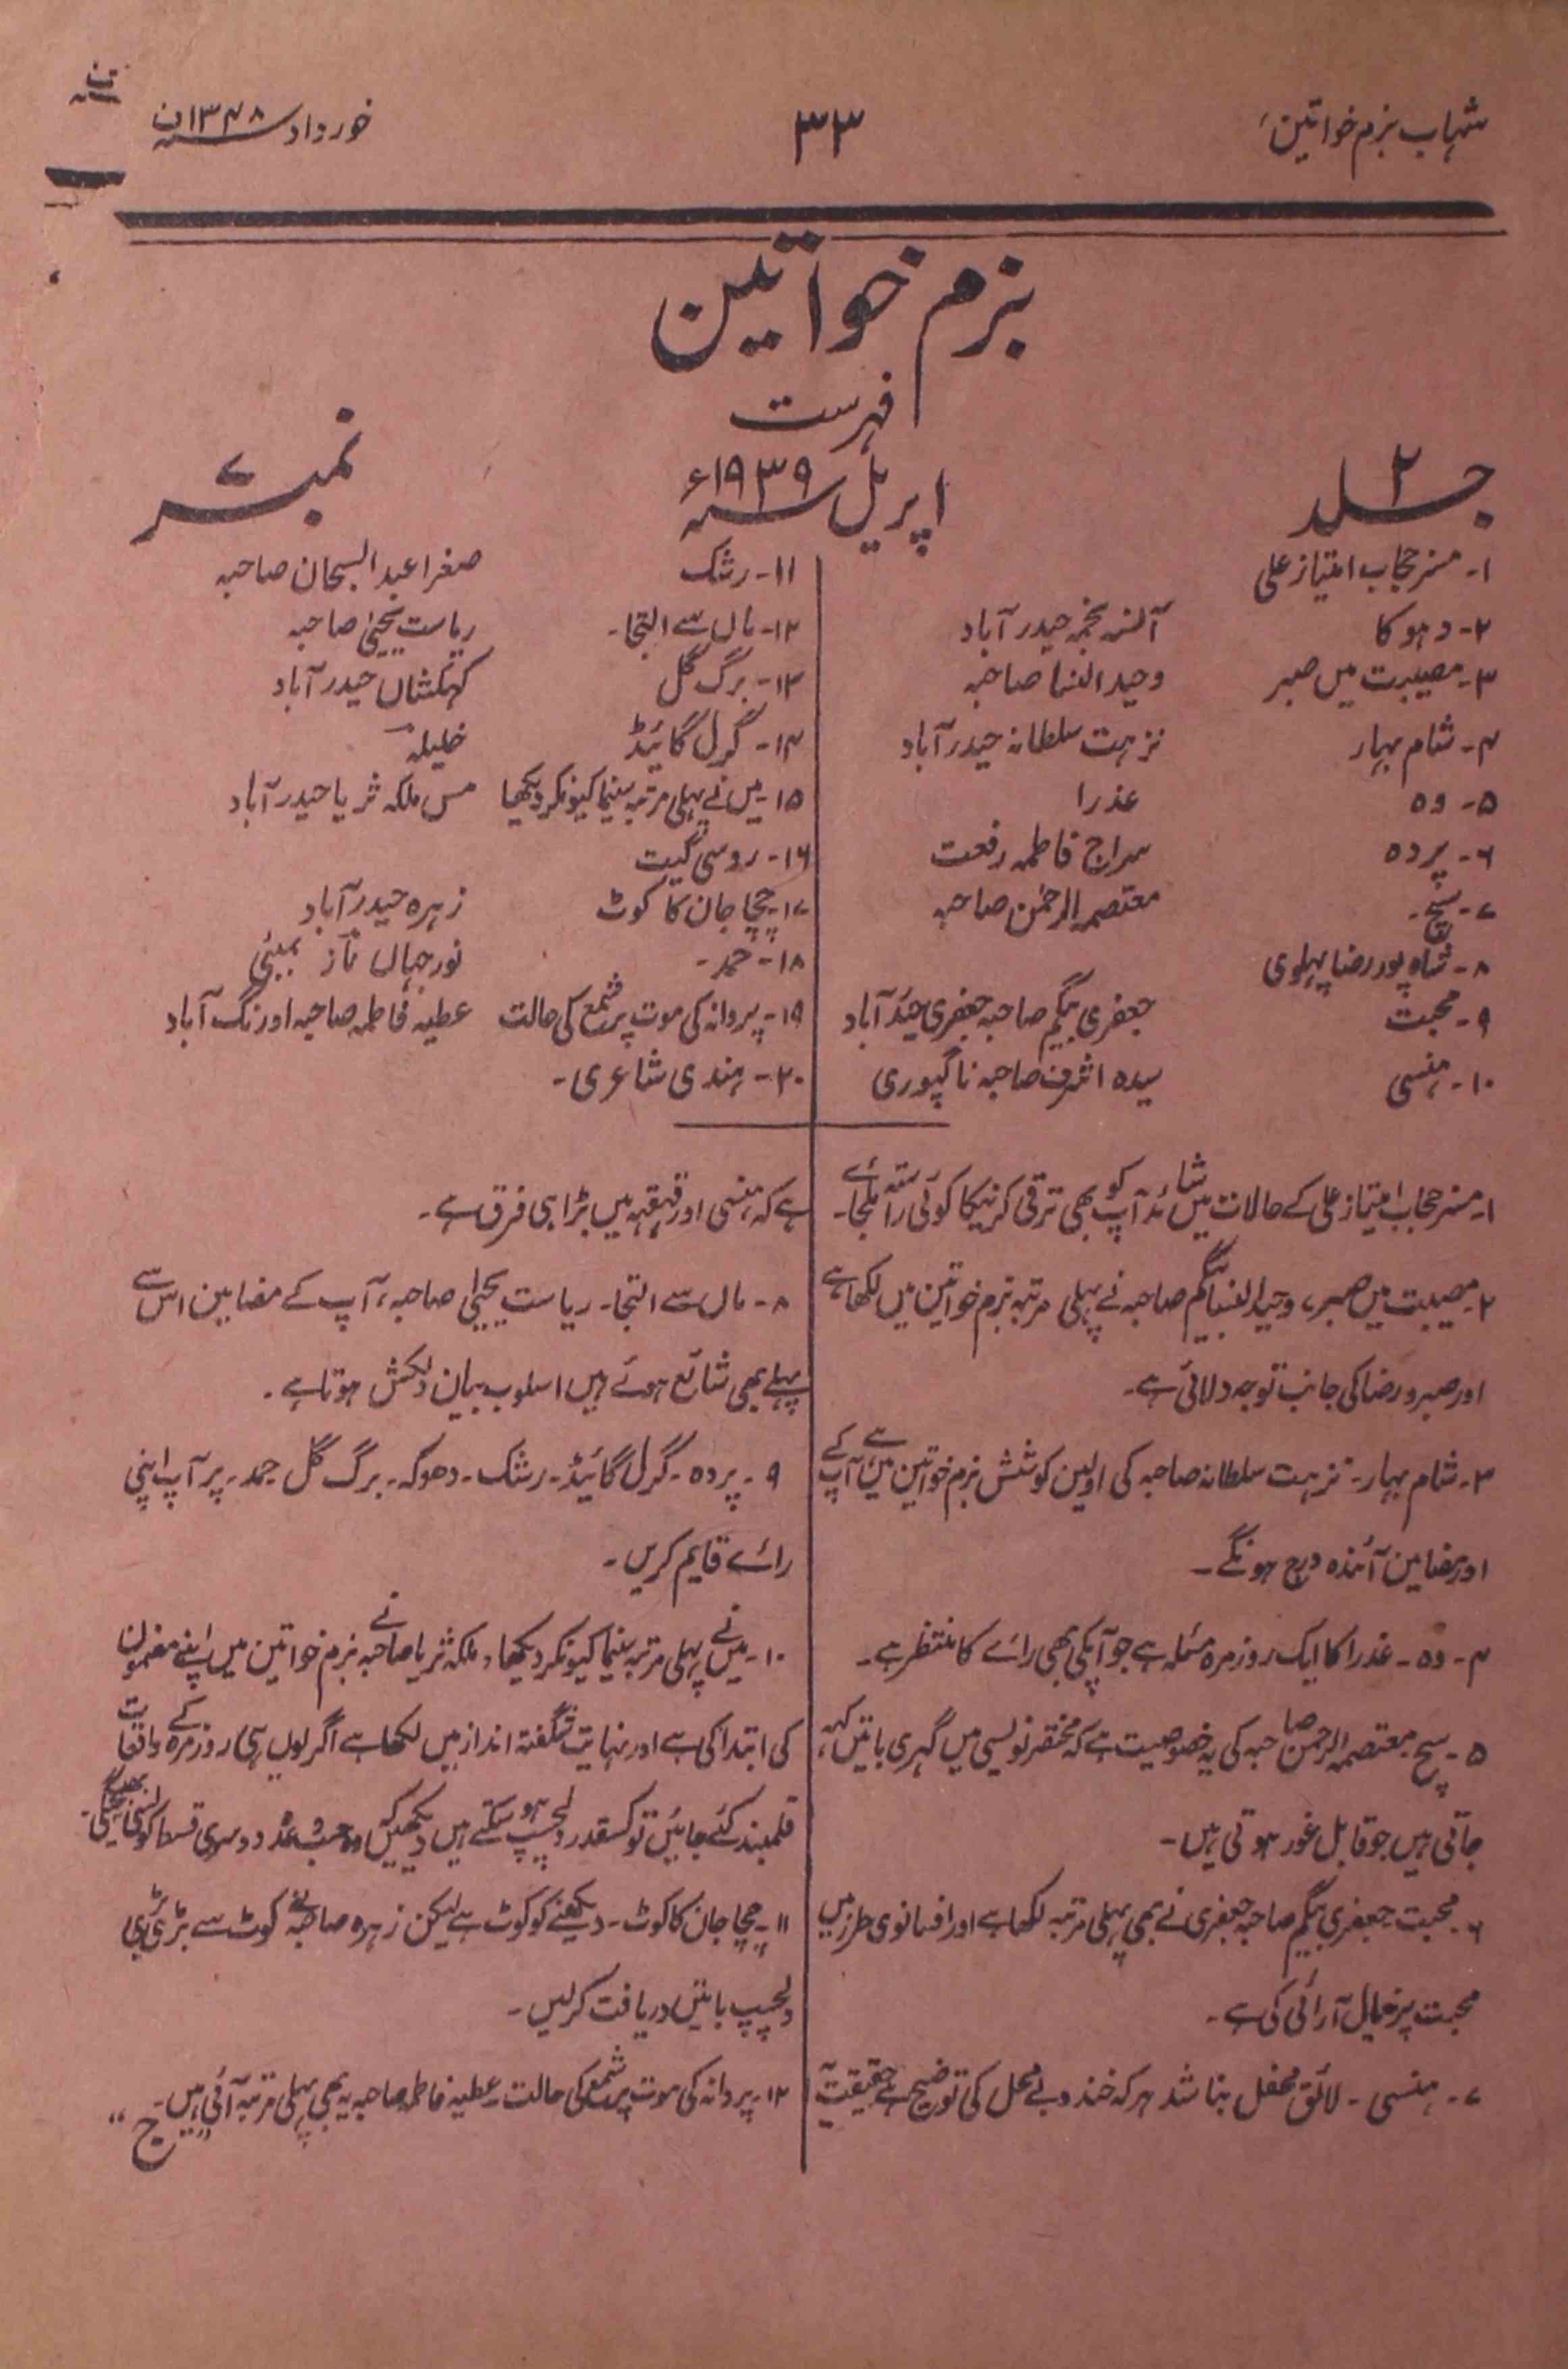 شہاب بزم خواتین
۳۳
خورداد سنہ ۱۳۴۸ ف
بزم خواتین
فہرست
جلد ۲
اپریل سنہ ۱۹۳۹ء
نمبر ۷
۱۔ مسز حجاب امتیاز علی
۲۔ دہوکا آنسہ نجمہ حیدرآباد
۳۔ مصیبت میں صبر وحید النسا صاحبہ
۴۔ شام بہار نزہت سلطانہ حیدرآباد
۵۔ وہ عذرا
۶۔ پردہ سراج فاطمہ رفعت
۷۔ سچ۔ معتصمہ الرحمٰن صاحبہ
۸۔ شاہ پور رضا پہلوی
۹۔ محبت جعفری بیگم صاحبہ جعفری حیدرآباد
۱۰۔ ہنسی سیدہ اشرف صاحبہ ناگپوری
۱۱۔ رشک صغرا عبدالسبحان صاحبہ
۱۲۔ ماں سے التجا۔ ریاست یحییٰ صاحبہ
۱۳۔ برگ گل کہکشاں حیدرآباد
۱۴۔ گرل گائیڈ خلیلہ
۱۵۔ میں نے پہلی مرتبہ سنیما کیونکر دیکھا مس ملکہ ثریا حیدرآباد
۱۶۔ روسی گیت
۱۷۔ چچا جان کا کوٹ زہرہ حیدرآباد
۱۸۔ حمد۔ نورجہاں ناز بمبئی
۱۹۔ پروانہ کی موت پر شمع کی حالت عطیہ فاطمہ صاحبہ اورنگ آباد
۲۰۔ ہندی شاعری۔
۱۔ مسز حجاب امتیاز علی کے حالات میں شائد آپ کو بھی ترقی کرنیکا کوئی راستہ ملجائے۔
۲۔ مصیبت میں صبر، وحید النسا بیگم صاحبہ نے پہلی مرتبہ بزم خواتین میں لکھا ہے
اور صبر و رضا کی جانب توجہ دلائی ہے۔
۳۔ شام بہار۔ نزہت سلطانہ صاحبہ کی اولین کوشش بزم خواتین میں ہے آپ کے
اور مضامین آئندہ درج ہونگے۔
۴۔ وہ۔ عذرا کا ایک روزمرہ مسئلہ ہے جو آپکی بھی رائے کا منتظر ہے۔
۵۔ سچ۔ معتصمہ الرحمن صاحبہ کی یہ خصوصیت ہے کہ مختصر نویسی میں گہری باتیں کہہ
جاتی ہیں جو قابل غور ہوتی ہیں۔
۶۔ محبت جعفری بیگم صاحبہ جعفری نے بھی پہلی مرتبہ لکھا ہے اور افسانوی طرز میں
محبت پر خیال آرائی کی ہے۔
۷۔ ہنسی۔ لائق محفل بناشد ہر کہ خندد بے محل کی توضیح ہے حقیقت
ہے کہ ہنسی اور قہقہہ میں بڑا ہی فرق ہے۔
۸۔ ماں سے التجا۔ ریاست یحییٰ صاحبہ، آپ کے مضامین اس سے
پہلے بھی شائع ہوئے ہیں اسلوب بیان دلکش ہوتا ہے۔
۹۔ پردہ۔ گرل گائیڈ۔ رشک۔ دھوکہ۔ برگ گل حمد۔ پر آپ اپنی
رائے قایم کریں۔
۱۰۔ میں نے پہلی مرتبہ سنیما کیونکر دیکھا، ملکہ ثریا صاحبہ نے بزم خواتین میں اپنے مضمون
کی ابتدا کی ہے اور نہایت شگفتہ انداز میں لکھا ہے اگر یوں ہی روزمرہ کے واقعات
قلمبند کئے جائیں تو کسقدر دلچسپ ہو سکتے ہیں دیکھیں وہ حسب وعدہ دوسری قسط کو
۱۱۔ چچا جان کا کوٹ۔ دیکھنے کو کوٹ ہے لیکن زہرہ صاحبہ نے کوٹ سے بڑی بڑی
دلچسپ باتیں دریافت کرلیں۔
۱۲۔ پروانہ کی موت پر شمع کی حالت۔ عطیہ فاطمہ صاحبہ یہ بھی پہلی مرتبہ آئی ہیں۔
”ج“